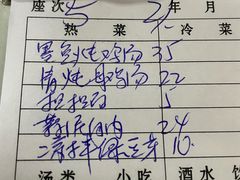 座次 5 年 月
热 菜 冷 菜
黑豆炖鸡汤 35
清炖母鸡汤 22
5
24
凉拌绿豆芽 10
汤类 小吃 酒水 饮